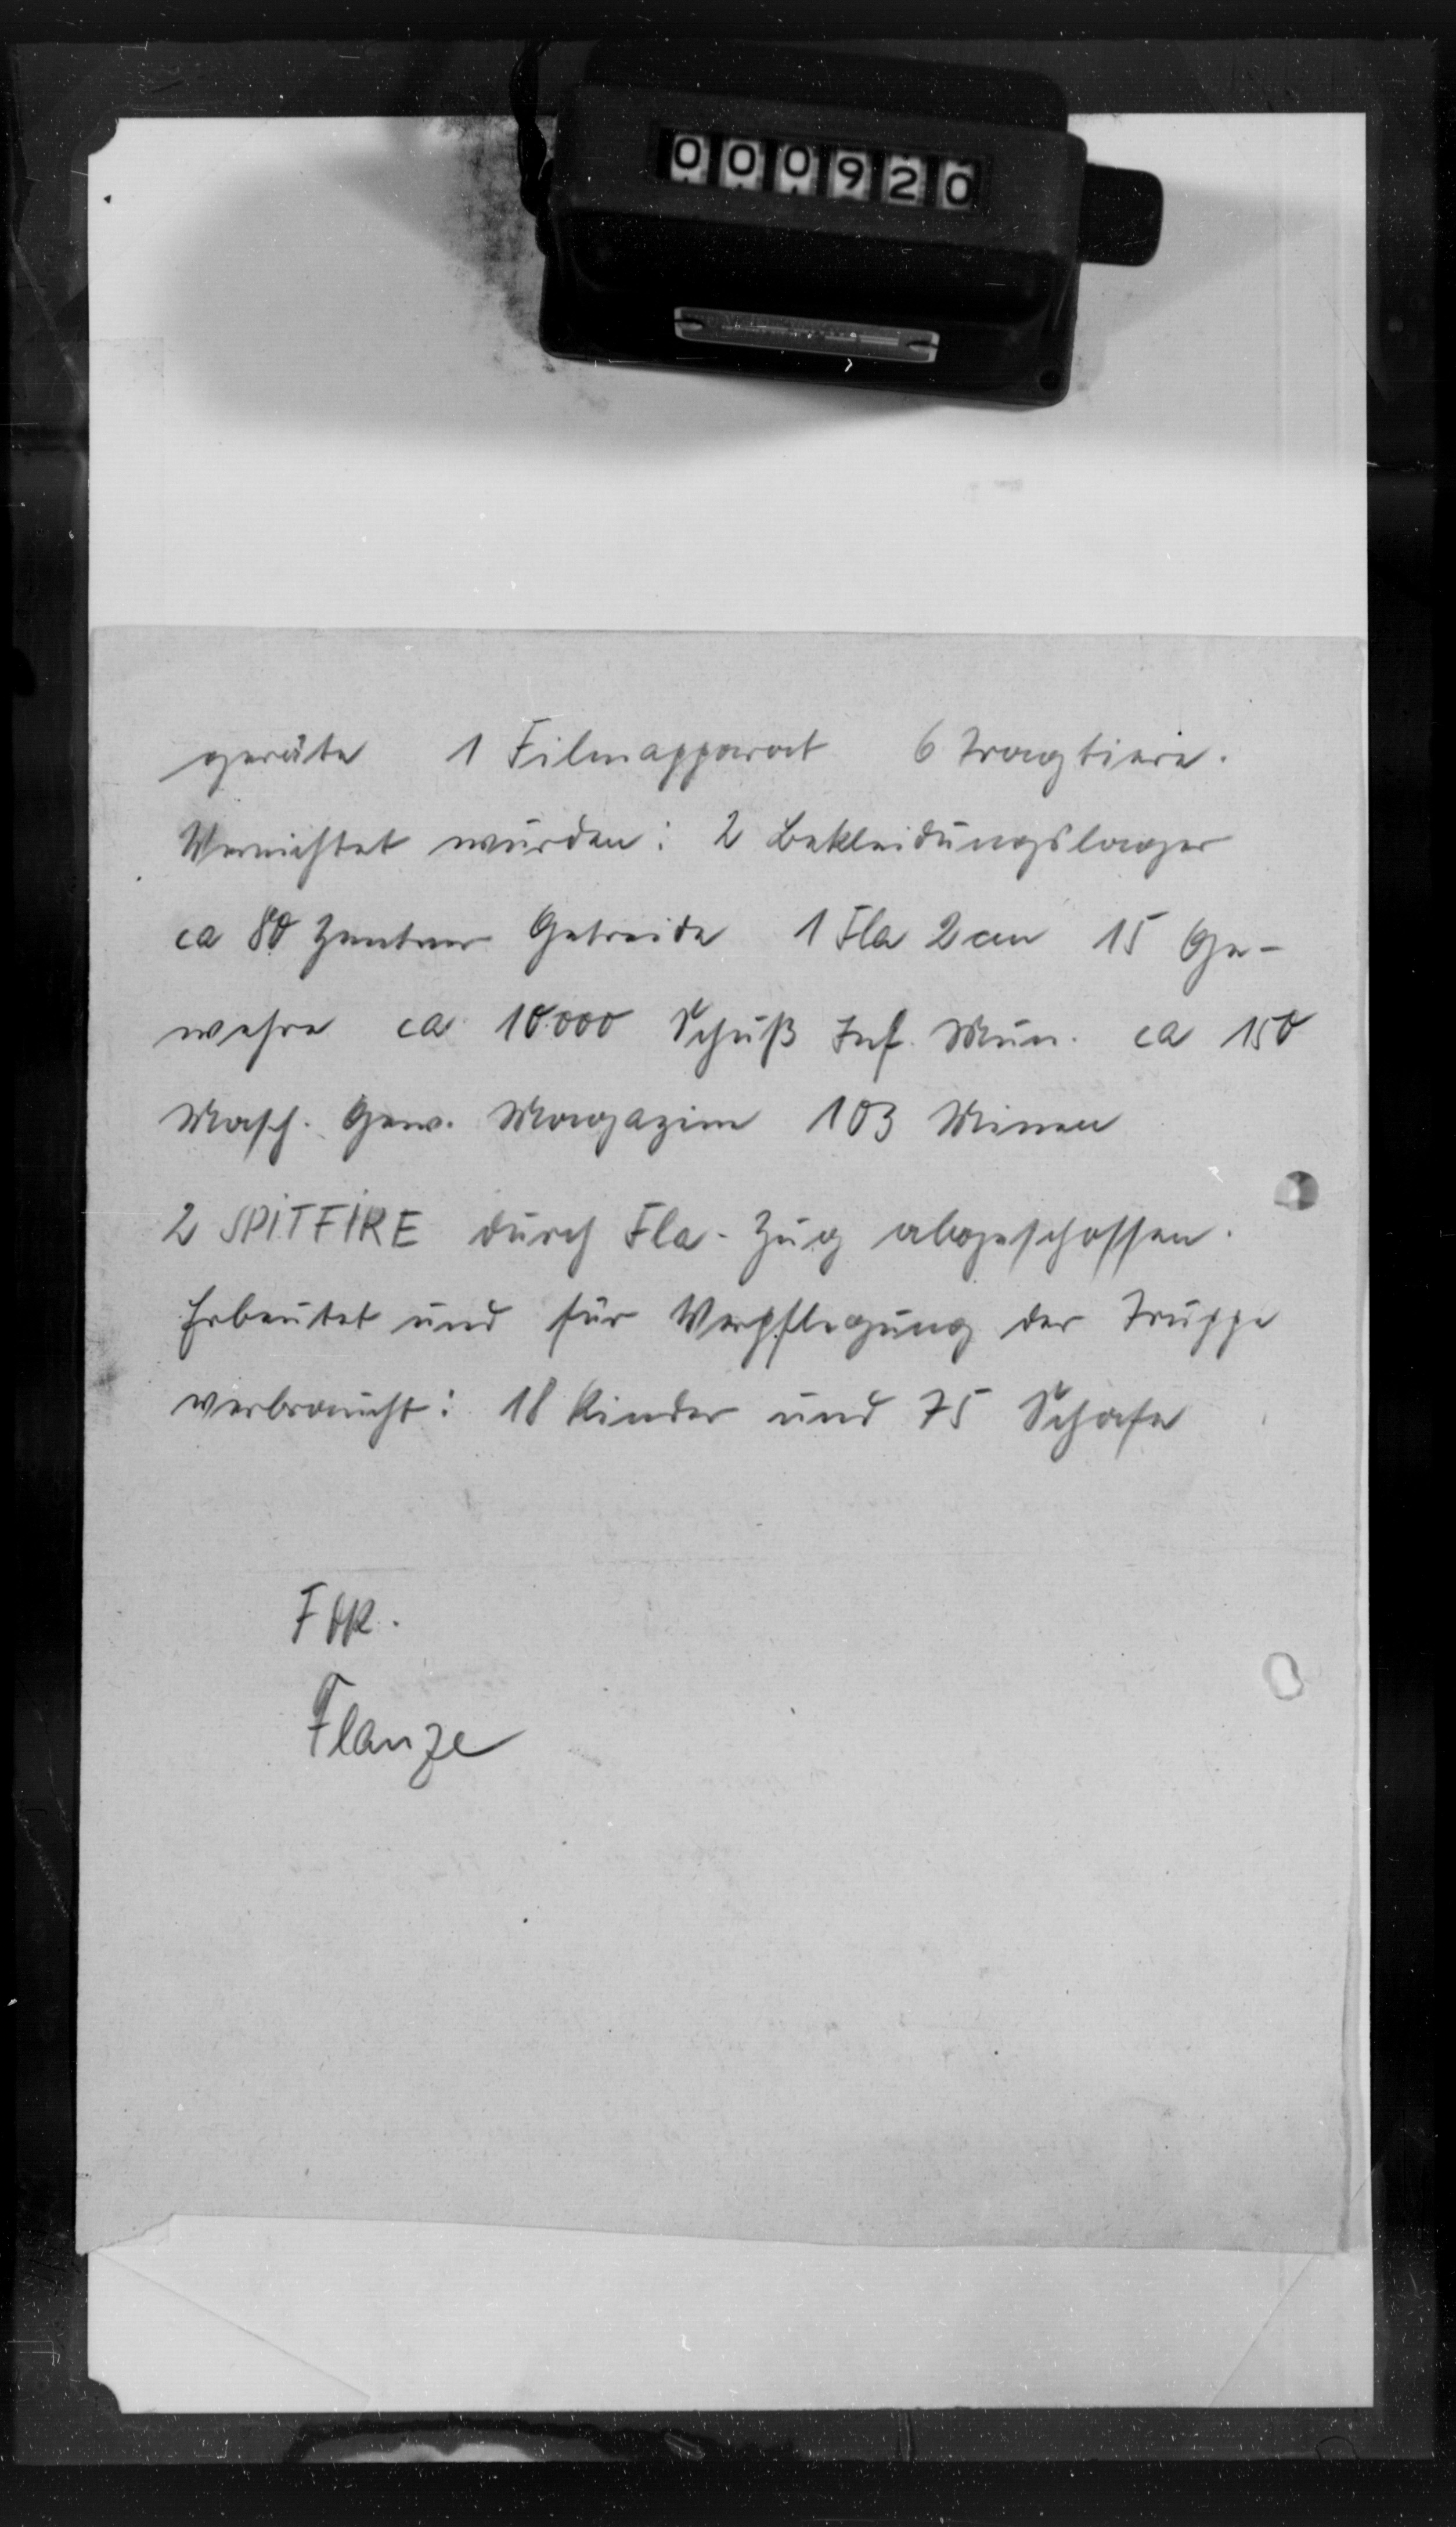 000920
geräte 1 Filmapparat 6 Tragtiere.
Vernichtet wurden: 2 Bekleidungslager
ca 80 Zentner Getreide 1 Fla 2 cm 15 Ge-
wehre ca 10000 Schuß Inf. Mun. ca 150
Masch. Gew. Magazine 103 Minen
2 SPITFIRE durch Fla-Zug abgeschossen.
Erbeutet und für Verpflegung der Truppe
verbraucht: 18 Rinder und 75 Schafe
Flanze